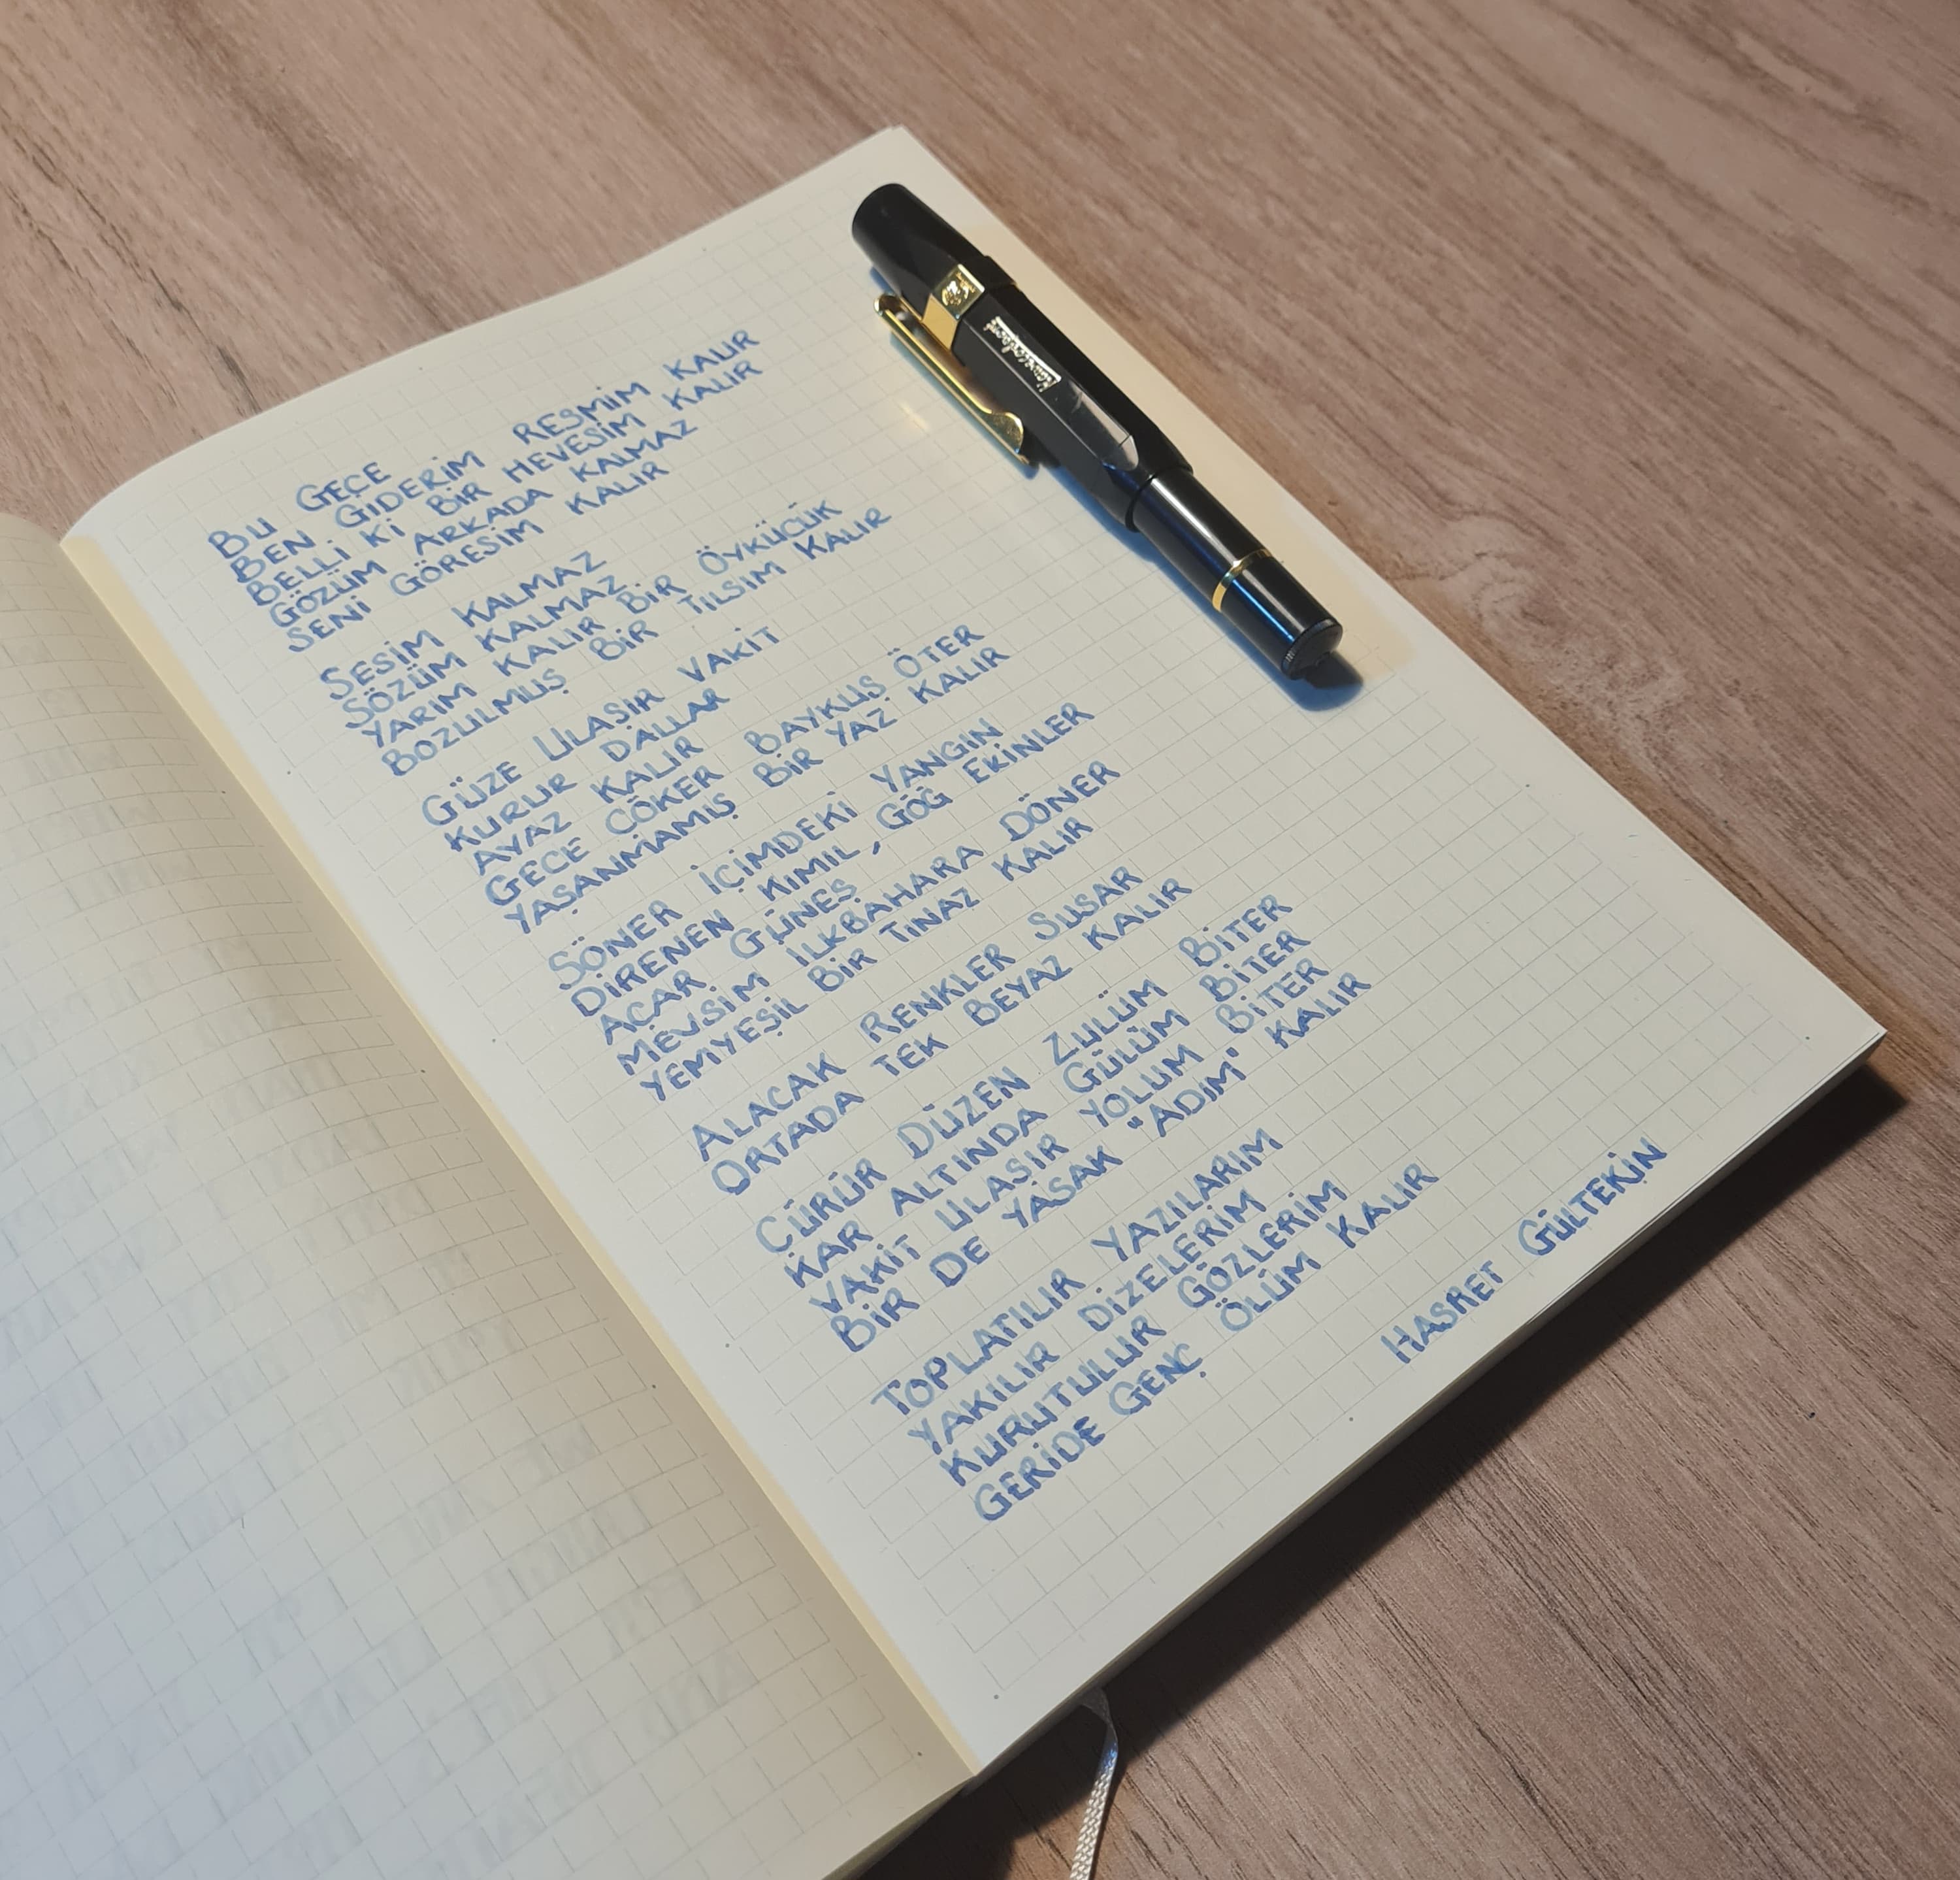 BU GECE
BEN GİDERİM RESMİM KALIR
BELLİ Kİ BİR HEVESİM KALIR
GÖZÜM ARKADA KALMAZ
SENİ GÖRESİM KALIR
SESİM KALMAZ
SÖZÜM KALMAZ
YARIM KALIR BİR ÖYKÜCÜK
BOZULMUŞ BİR TILSIM KALIR
GÜZE ULAŞIR VAKİT
KURUR DALLAR
AYAZ KALIR
GECE ÇÖKER BAYKUŞ ÖTER
YAŞANMAMIŞ BİR YAZ KALIR
SÖNER İÇİMDEKİ YANGIN
DİRENEN KIMIL, GÖĞ EKİNLER
AÇAR GÜNEŞ
MEVSİM İLKBAHARA DÖNER
YEMYEŞİL BİR TINAZ KALIR
ALACAK RENKLER SUSAR
ORTADA TEK BEYAZ KALIR
ÇÜRÜR DÜZEN ZULÜM BİTER
KAR ALTINDA GÜLÜM BİTER
VAKİT ULAŞIR YOLUM BİTER
BİR DE YASAK "ADIM" KALIR
TOPLATILIR YAZILARIM
YAKILIR DİZELERİM
KURUTULUR GÖZLERİM
GERİDE GENÇ ÖLÜM KALIR
HASRET GÜLTEKİN
Kaweco Sport